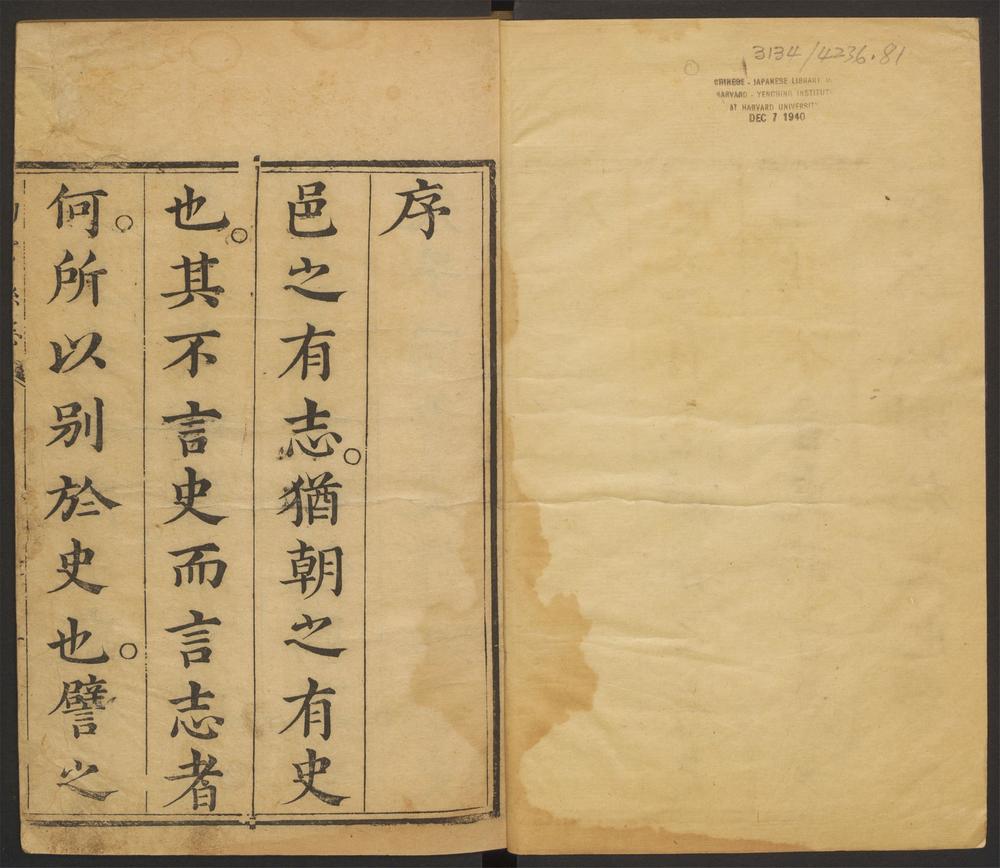 序
邑之有志。猶朝之有史
也。其不言史而言志者
何。所以别於史也。譬之
3134/4236.81
CHINESE - JAPANESE LIBRARY
HARVARD - YENCHING INSTITUT
AT HARVARD UNIVERSIT
DEC 7 1940